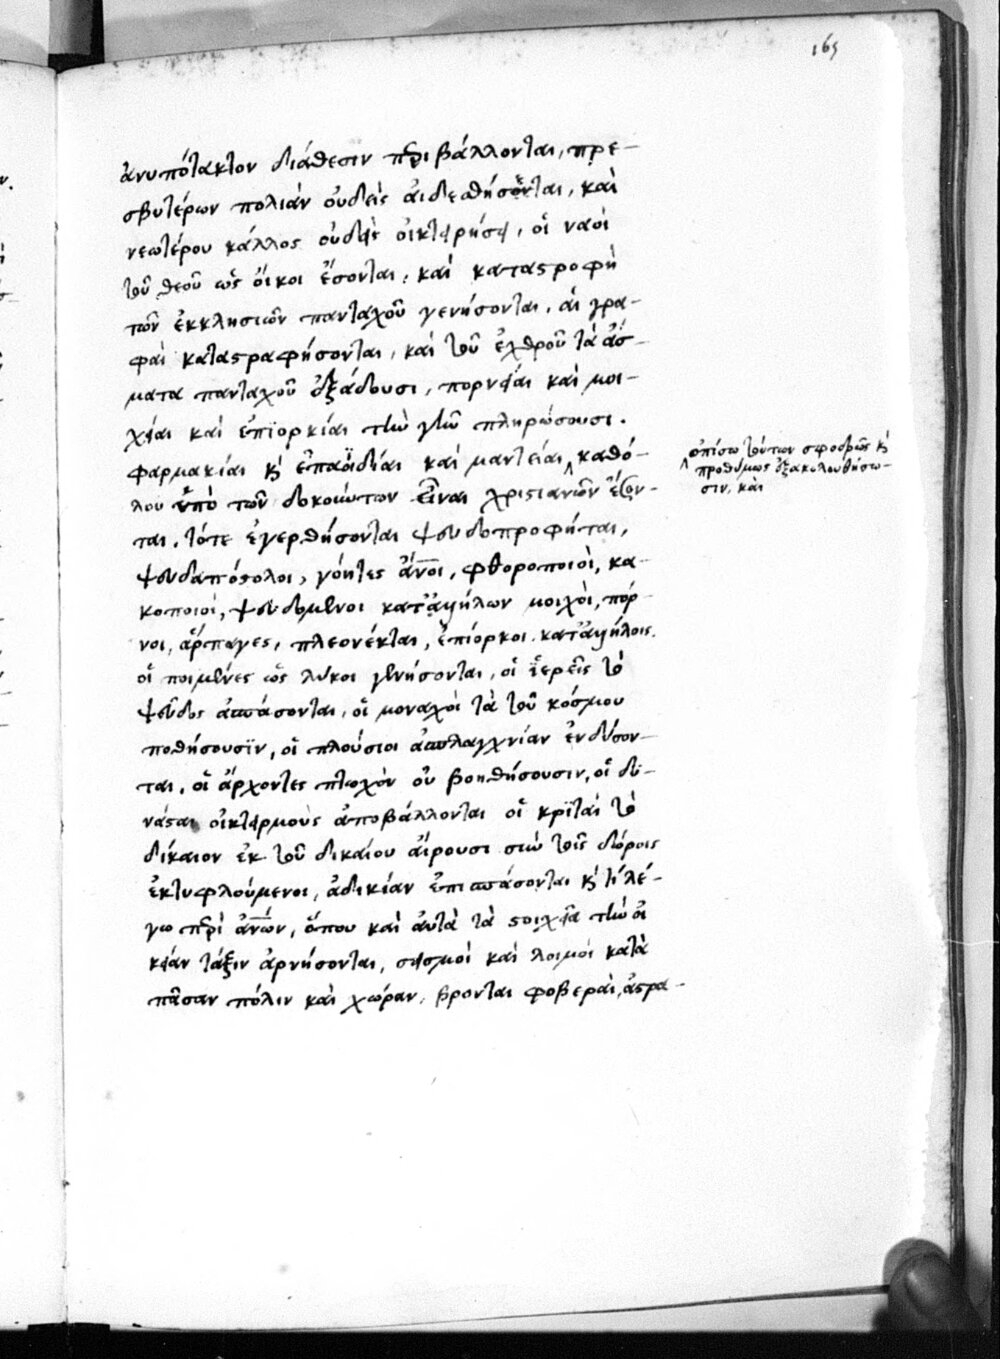 165
ἀνυπότακτον διάθεσιν περιβάλλονται, πρε-
σβυτέρων πολιὰν οὐδεὶς αἰδεσθήσονται, καὶ
νεωτέρου κάλλος οὐδεὶς οἰκτειρήσει, οἱ ναοὶ
τοῦ θεοῦ ὡς οἶκοι ἔσονται, καὶ καταστροφὴ
τῶν ἐκκλησιῶν πανταχοῦ γενήσονται, αἱ γρα-
φαὶ καταστραφήσονται, καὶ τοῦ ἐχθροῦ τὰ ἄσ-
ματα πανταχοῦ ἐξάδουσι, πορνείαι καὶ μοι-
χείαι καὶ ἐπϊορκίαι τὴν γῆν πληρώσουσι.
φαρμακίαι κ ἐπαοϊδίαι καὶ μαντείαι, καθό-
ὀπίσω τούτων σφοδρῶς κ
προθύμως ἐξακολουθήσω-
σιν, καὶ
λου ὑπὸ τῶν δοκούντων εἶναι χριστιανῶν ἔσον-
ται. τότε ἐγερθήσονται ψευδοπροφήται,
ψευδαπόστολοι, γόητες ἄνοι, φθοροποιοὶ, κα-
κοποιοὶ, ψευδόμενοι κατ' ἀλλήλων μοιχοὶ, πόρ-
νοι, ἅρπαγες, πλεονέκται, ἐπίορκοι. κατ' ἀλλήλοις.
οἱ ποιμένες ὡς λύκοι γενήσονται, οἱ ἱερεῖς τὸ
ψεῦδος ἀσπάσονται, οἱ μοναχοὶ τὰ τοῦ κόσμου
ποθήσουσϊν, οἱ πλούσιοι ἀσπλαγχνίαν ἐνδύσον-
ται. οἱ ἄρχοντες πτωχὸν οὐ βοηθήσουσιν, οἱ δυ-
νάσται οἰκτειρμοὺς ἀποβάλλονται οἱ κρϊταὶ τὸ
δίκαιον ἐκ τοῦ δικαίου αἴρουσι σὺν τοῖς δώροις
ἐκτυφλούμενοι, ἀδικίαν ἐπισπάσονται κ τί λέ-
γω περὶ ἀνών, ὅπου καὶ αὐτὰ τὰ στοιχεῖα τὴν οἰ-
κείαν τάξιν ἀρνήσονται, σεισμοὶ καὶ λοιμοὶ κατὰ
πᾶσαν πόλιν καὶ χώραν, βρονται φοβεραὶ, ἀστρα-